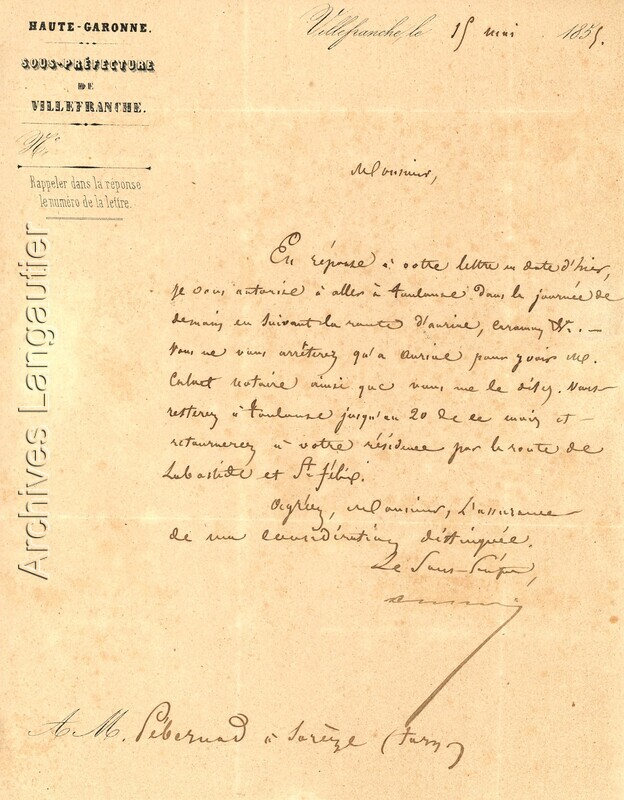 HAUTE-GARONNE.
SOUS-PRÉFECTURE
DE
VILLEFRANCHE.
N.º
Rappeler dans la réponse
le numéro de la lettre.
Villefranche, le 15 mai 1855.
Monsieur,
En réponse à votre lettre en date d'hier,
je vous autorise à aller à Toulouse dans la journée de
demain en suivant la route d'auriac, &c. —
Vous ne vous arrêterez qu'à auriac pour y voir M.
Calvet notaire ainsi que vous me le dites. Vous
resterez à Toulouse jusqu'au 20 de ce mois et
retournerez à votre résidence par la route de
Labastide et St. félix.
Agréez, Monsieur, l'assurance
de ma considération distinguée.
Le Sous-Préfet,
A M. Pébernad à Sorèze (Tarn)
Archives Langautier